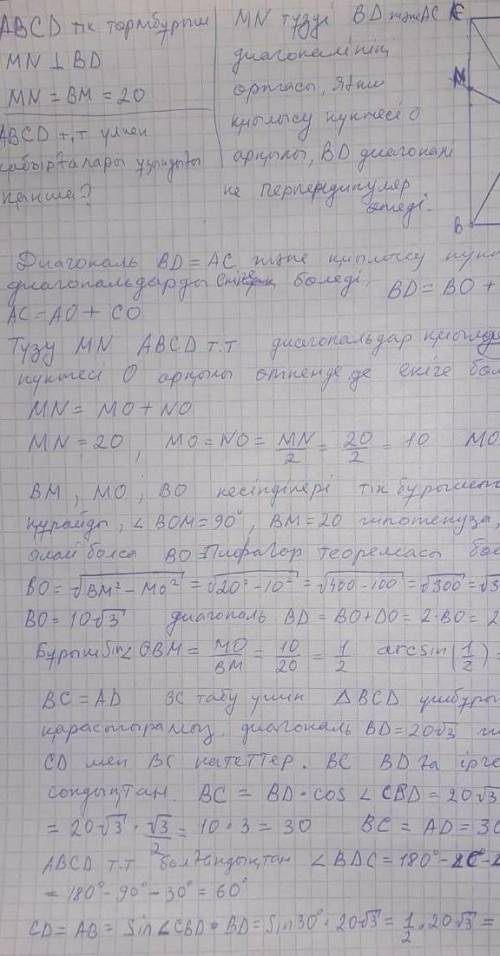 ABCD тік төртбұрыш
MN ⊥ BD
MN = BM = 20
ABCD т.т үлкен
қабырғалары ұзындығы
қанша?
MN түзуі BD және AC
диагоналінің
ортасы, яғни
қиылысу нүктесі O
арқылы, BD диагонал
не перпендикуляр
өтеді.
M
B
Диагональ BD = AC және қиылысу
диагональдарды бөледі, BD = BO +
AC = AO + CO
Түзу MN ABCD т.т диагональдар
нүктесі O арқылы өткенде де екіге
MN = MO + NO
MN = 20, MO = NO = MN/2 = 20/2 = 10 MO
BM, MO, BO кесінділері тік бұрышты
құрайды, ∠BOM = 90°, BM = 20 гипотенуза
олай болса BO = Пифагор теоремасы
BO = √BM² - MO² = √20² - 10² = √400 - 100 = √300 = √3
BO = 10√3 диагональ BD = BO + DO = 2·BO = 2
Бұрыш Sin∠OBM = MO/BM = 10/20 = 1/2 arcsin(1/2) =
BC = AD BC табу үшін ΔBCD
қарастырамыз, диагональ BD = 20√3
CD мен BC катеттер. BC BD ға
сондықтан. BC = BD·cos∠CBD = 20√3
= 20√3 · √3/2 = 10·3 = 30 BC = AD = 30
ABCD т.т болғандықтан ∠BDC = 180° - ∠C - ∠
= 180° - 90° - 30° = 60°
CD = AB = Sin∠CBD · BD = Sin30° · 20√3 = 1/2 · 20√3 =